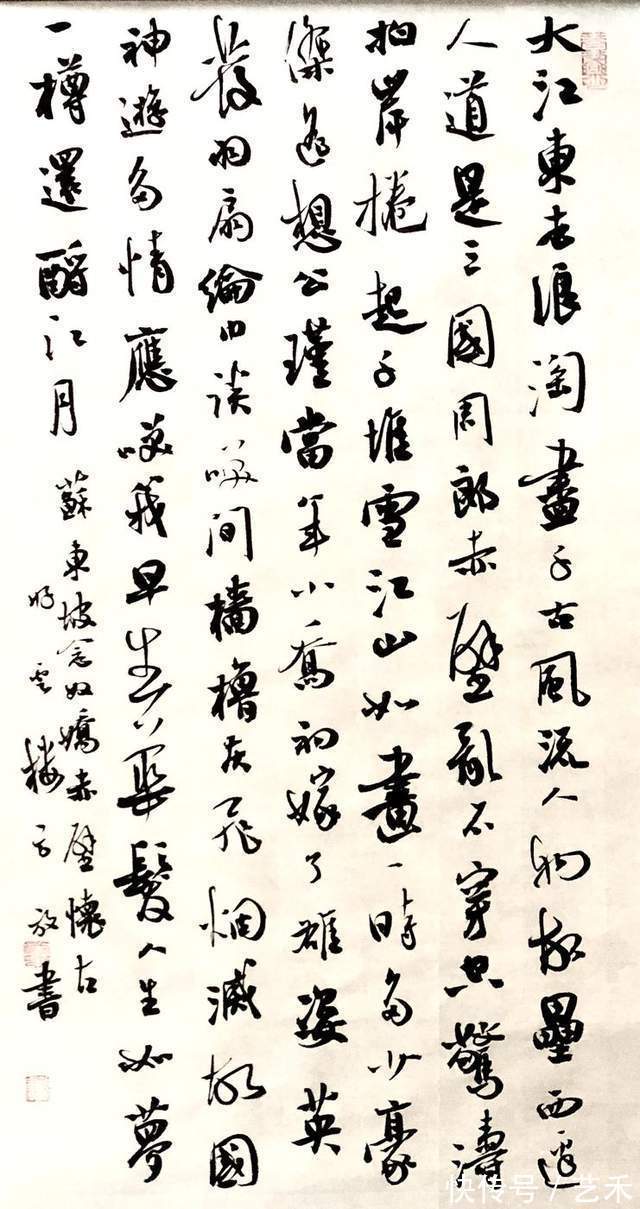 大江東去浪淘盡千古風流人物故壘西邊
人道是三國周郎赤壁亂石穿空驚濤
拍岸捲起千堆雪江山如畫一時多少豪
傑遙想公瑾當年小喬初嫁了雄姿英
發羽扇綸巾談咲間檣櫓灰飛烟滅故國
神遊多情應咲我早生華髮人生如夢
一樽還酹江月
蘇東坡念奴嬌赤壁懷古
雲楼放書
快传号/艺禾